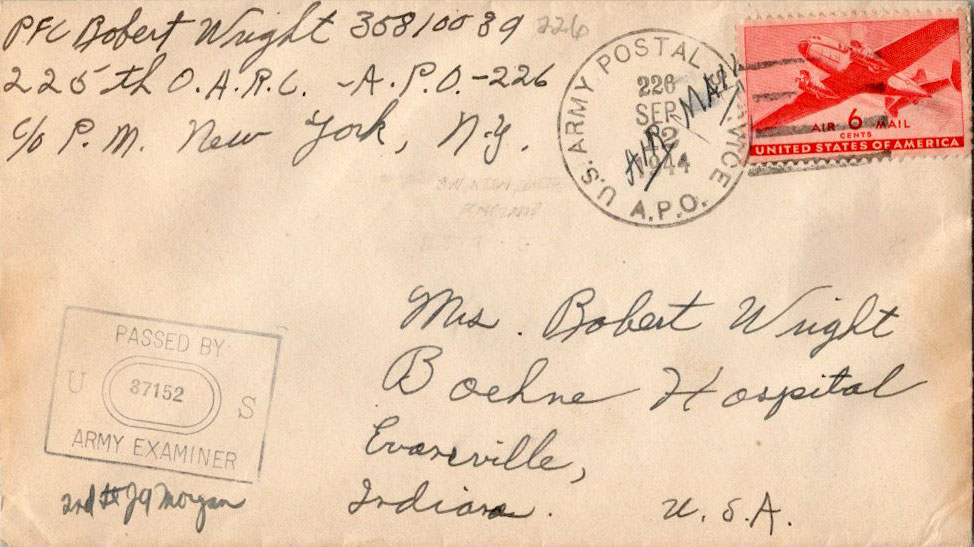 PFC Robert Wright 35810089 226
225th O.A.R.C. -A.P.O.-226
c/o P.M. New York, N.Y.
U.S. ARMY POSTAL SERVICE
226
SEP
2
1944
A.P.O.
AIR MAIL
AIR 6 MAIL
CENTS
UNITED STATES OF AMERICA
ENGLAND
Mrs. Robert Wright
Boehne Hospital
Evansville,
Indiana. U.S.A.
PASSED BY
U 37152 S
ARMY EXAMINER
2nd Lt J A Morgan